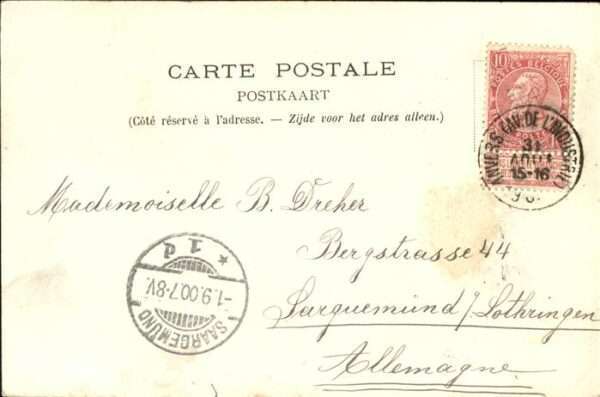 CARTE POSTALE
POSTKAART
(Côté réservé à l'adresse. — Zijde voor het adres alleen.)
10
POSTES BELGIQUE
ANVERS (AV. DE L'INDUSTRIE)
31
AOUT
15-16
Mademoiselle B. Dreher
Bergstrasse 44
Sarguemünd / Lothringen
Allemagne.
* 1 d
-1.9.00.7-8V.
SAARGEMÜND